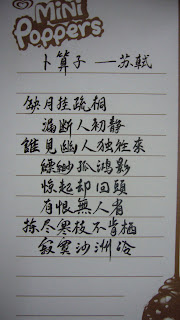 MiNi
Poppers
卜算子 ——苏轼
缺月挂疏桐
漏断人初静
誰見幽人独往來
縹緲孤鴻影
惊起却回頭
有恨無人省
拣尽寒枝不肯栖
寂寞沙洲冷